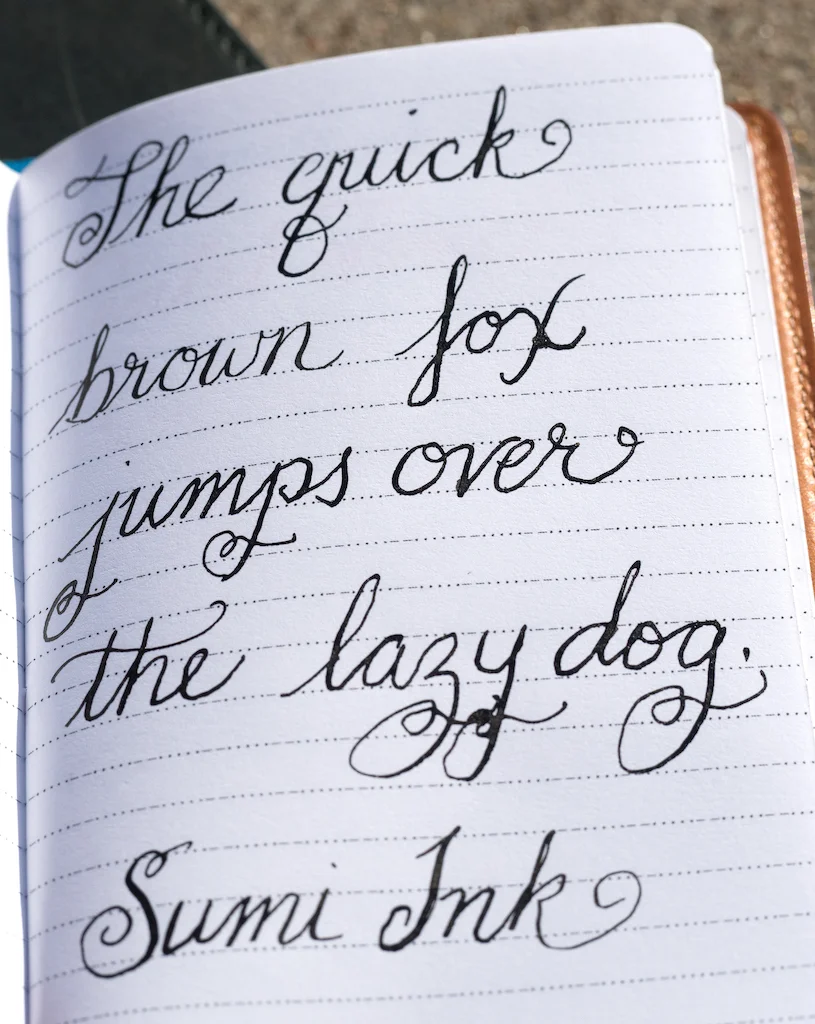 The quick
brown fox
jumps over
the lazy dog.
Sumi Ink